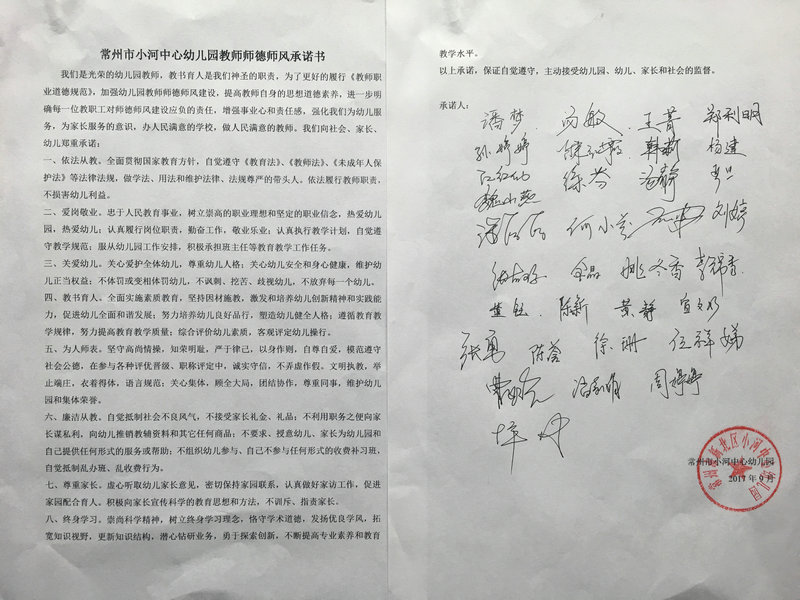 常州市小河中心幼儿园教师师德师风承诺书
我们是光荣的幼儿园教师，教书育人是我们神圣的职责，为了更好的履行《教师职
业道德规范》，加强幼儿园教师师德师风建设，提高教师自身的思想道德素养，进一步明
确每一位教职工对师德师风建设应负的责任，增强事业心和责任感，强化我们为幼儿服
务，为家长服务的意识，办人民满意的学校，做人民满意的教师。我们向社会、家长、
幼儿郑重承诺：
一、依法从教。全面贯彻国家教育方针，自觉遵守《教育法》、《教师法》、《未成年人保
护法》等法律法规，做学法、用法和维护法律、法规尊严的带头人。依法履行教师职责，
不损害幼儿利益。
二、爱岗敬业。忠于人民教育事业，树立崇高的职业理想和坚定的职业信念，热爱幼儿
园，热爱幼儿；认真履行岗位职责，勤奋工作，敬业乐业；认真执行教学计划，自觉遵
守教学规范；服从幼儿园工作安排，积极承担班主任等教育教学工作任务。
三、关爱幼儿。关心爱护全体幼儿，尊重幼儿人格；关心幼儿安全和身心健康，维护幼
儿正当权益；不体罚或变相体罚幼儿，不讽刺、挖苦、歧视幼儿，不放弃每一个幼儿。
四、教书育人。全面实施素质教育，坚持因材施教，激发和培养幼儿创新精神和实践能
力，促进幼儿全面和谐发展；努力培养幼儿良好品行，塑造幼儿健全人格；遵循教育教
学规律，努力提高教育教学质量；综合评价幼儿素质，客观评定幼儿操行。
五、为人师表。坚守高尚情操，知荣明耻，严于律己，以身作则，自尊自爱，模范遵守
社会公德，在参与各种评优晋级、职称评定中，诚实守信，不弄虚作假。文明执教，举
止端庄，衣着得体，语言规范；关心集体，顾全大局，团结协作，尊重同事，维护幼儿
园和集体荣誉。
六、廉洁从教。自觉抵制社会不良风气，不接受家长礼金、礼品；不利用职务之便向家
长谋私利，向幼儿推销教辅资料和其它任何商品；不要求、授意幼儿、家长为幼儿园和
自己提供任何形式的服务或帮助；不组织幼儿参与、自己不参与任何形式的收费补习班，
自觉抵制乱办班、乱收费行为。
七、尊重家长。虚心听取幼儿家长意见，密切保持家园联系，认真做好家访工作，促进
家园配合育人。积极向家长宣传科学的教育思想和方法，不训斥、指责家长。
八、终身学习。崇尚科学精神，树立终身学习理念，恪守学术道德，发扬优良学风，拓
宽知识视野，更新知识结构，潜心钻研业务，勇于探索创新，不断提高专业素养和教育
教学水平。
以上承诺，保证自觉遵守，主动接受幼儿园、幼儿、家长和社会的监督。
承诺人：
潘梦 汤敏 王菁 郑利明
孙婷婷 韩新 杨建
江红仙 徐芬 汤静
魏小燕
何小芬 刘婷
姚冬香 李锦香
陈新 黄静
张勇 陈蓉 徐珊 伍祥娣
周婷婷
常州市小河中心幼儿园
2017年9月